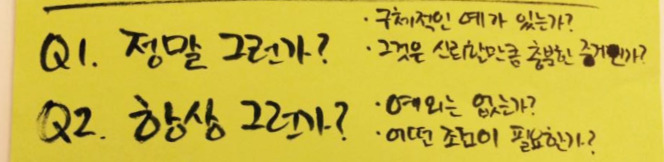 Q1. 정말 그런가?
· 구체적인 예가 있는가?
· 그것은 신뢰할만큼 충분한 증거인가?
Q2. 항상 그런가?
· 예외는 없는가?
· 어떤 조건이 필요한가?